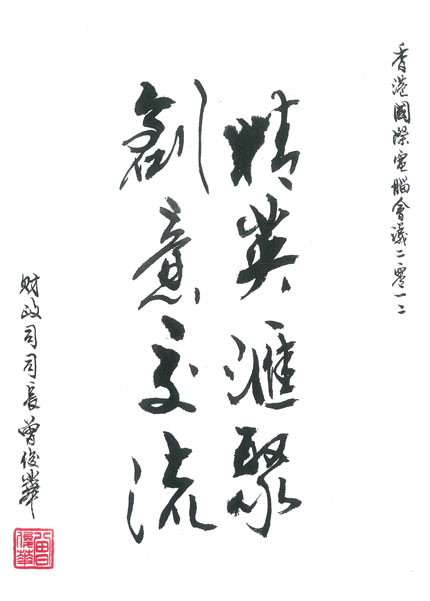 香港國際電腦會議二零一二
精英滙聚
創意交流
財政司司長曾俊華
曾俊華